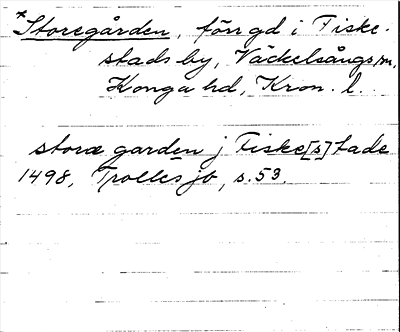 *Storegården, förr gd i Fiske-
stads by, Väckelsångs sn,
Konga hd, Kron. l.
storæ garden j Fiske[s]tade
1498, Trolles jb, s. 53.